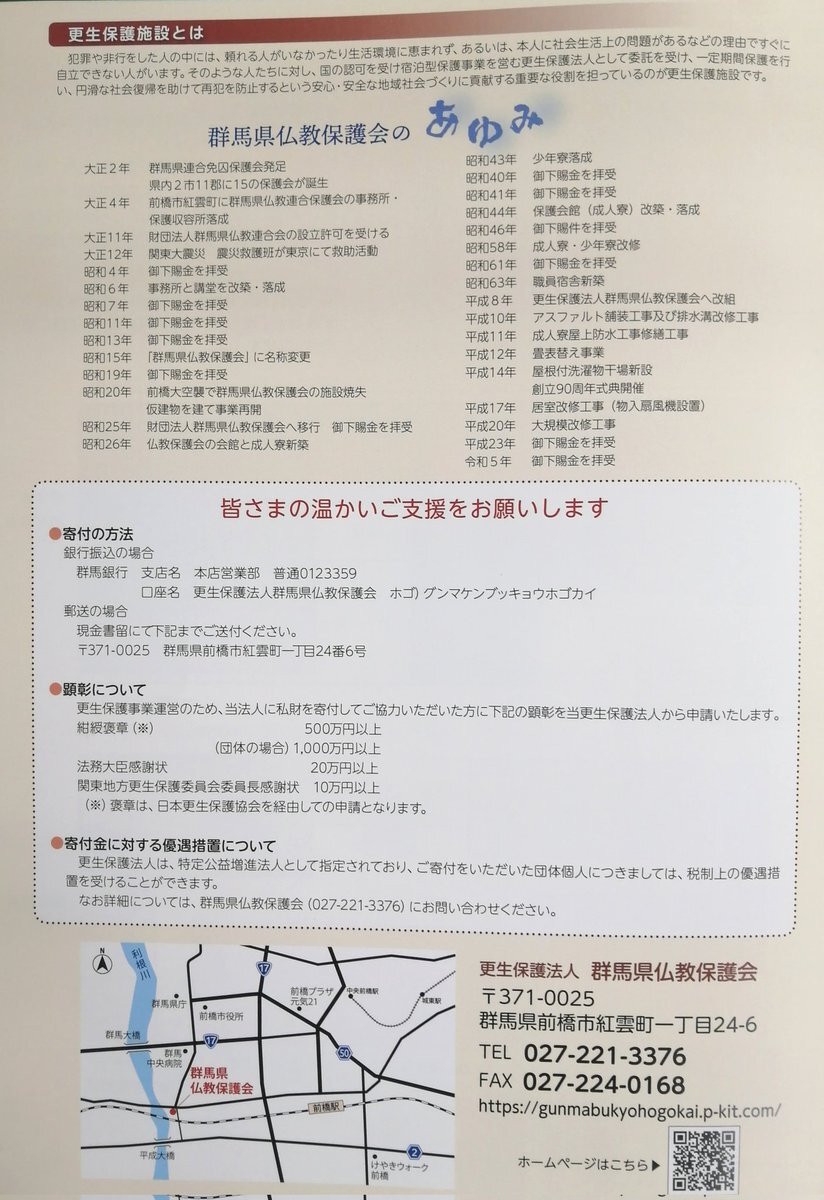 更生保護施設とは
犯罪や非行をした人の中には、頼れる人がいなかったり生活環境に恵まれず、あるいは、本人に社会生活上の問題があるなどの理由ですぐに
自立できない人がいます。そのような人たちに対し、国の認可を受け宿泊型保護事業を営む更生保護法人として委託を受け、一定期間保護を行
い、円滑な社会復帰を助けて再犯を防止するという安心・安全な地域社会づくりに貢献する重要な役割を担っているのが更生保護施設です。
群馬県仏教保護会の あゆみ
大正2年 群馬県連合免囚保護会発足
県内2市11郡に15の保護会が誕生
大正4年 前橋市紅雲町に群馬県仏教連合保護会の事務所・
保護収容所落成
大正11年 財団法人群馬県仏教連合会の設立許可を受ける
大正12年 関東大震災 震災救護班が東京にて救助活動
昭和4年 御下賜金を拝受
昭和6年 事務所と講堂を改築・落成
昭和7年 御下賜金を拝受
昭和11年 御下賜金を拝受
昭和13年 御下賜金を拝受
昭和15年 「群馬県仏教保護会」に名称変更
昭和19年 御下賜金を拝受
昭和20年 前橋大空襲で群馬県仏教保護会の施設焼失
仮建物を建て事業再開
昭和25年 財団法人群馬県仏教保護会へ移行 御下賜金を拝受
昭和26年 仏教保護会の会館と成人寮新築
昭和43年 少年寮落成
昭和40年 御下賜金を拝受
昭和41年 御下賜金を拝受
昭和44年 保護会館（成人寮）改築・落成
昭和46年 御下賜件を拝受
昭和58年 成人寮・少年寮改修
昭和61年 御下賜金を拝受
昭和63年 職員宿舎新築
平成8年 更生保護法人群馬県仏教保護会へ改組
平成10年 アスファルト舗装工事及び排水溝改修工事
平成11年 成人寮屋上防水工事修繕工事
平成12年 畳表替え事業
平成14年 屋根付洗濯物干場新設
創立90周年式典開催
平成17年 居室改修工事（物入扇風機設置）
平成20年 大規模改修工事
平成23年 御下賜金を拝受
令和5年 御下賜金を拝受
皆さまの温かいご支援をお願いします
●寄付の方法
銀行振込の場合
群馬銀行 支店名 本店営業部 普通0123359
口座名 更生保護法人群馬県仏教保護会 ホゴ）グンマケンブッキョウホゴカイ
郵送の場合
現金書留にて下記までご送付ください。
〒371-0025 群馬県前橋市紅雲町一丁目24番6号
●顕彰について
更生保護事業運営のため、当法人に私財を寄付してご協力いただいた方に下記の顕彰を当更生保護法人から申請いたします。
紺綬褒章（※） 500万円以上
（団体の場合）1,000万円以上
法務大臣感謝状 20万円以上
関東地方更生保護委員会委員長感謝状 10万円以上
（※）褒章は、日本更生保護協会を経由しての申請となります。
●寄付金に対する優遇措置について
更生保護法人は、特定公益増進法人として指定されており、ご寄付をいただいた団体個人につきましては、税制上の優遇措
置を受けることができます。
なお詳細については、群馬県仏教保護会（027-221-3376）にお問い合わせください。
N
利根川
17
群馬県庁
前橋市役所
前橋プラザ
元気21
中央前橋駅
城東駅
群馬大橋
17
50
群馬
中央病院
群馬県
仏教保護会
前橋駅
平成大橋
2
けやきウォーク
前橋
更生保護法人 群馬県仏教保護会
〒371-0025
群馬県前橋市紅雲町一丁目24-6
TEL 027-221-3376
FAX 027-224-0168
https://gunmabukyohogokai.p-kit.com/
ホームページはこちら▶